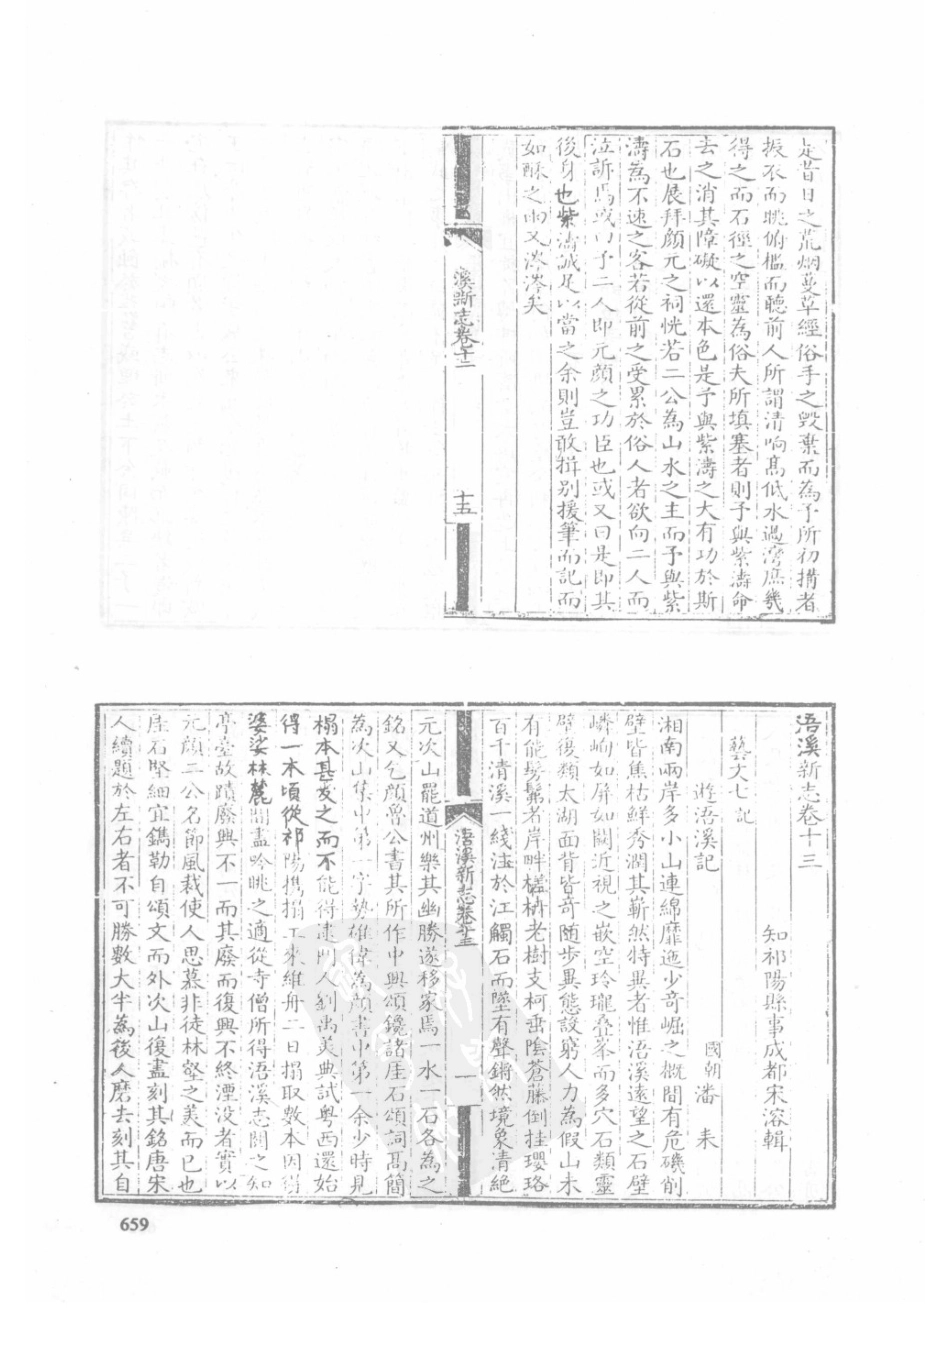 是昔日之荒烟蔓草經俗手之毀棄而為予所初搆者
振衣而眺俯檻而聽前人所謂清响髙低水過灣庶幾
得之而石徑之空靈為俗夫所填塞者則予與紫濤命
去之消其障礙以還本色是予與紫濤之大有功於斯
石也展拜顔元之祠恍若二公為山水之主而予與紫
濤為不速之客若從前之受累於俗人者欲向二人而
泣訴焉或曰予二人即元顔之功臣也或又曰是即其
後身也紫濤誠足以當之余則豈敢揖别援筆而記而
如酥之雨又涔涔矣
溪新志卷十二
十五
浯溪新志卷十三
知祁陽縣事成都宋溶輯
藝文七 記
遊浯溪記
國朝潘 耒
湘南兩岸多小山連綿靡迤少奇崛之概間有危磯削
壁皆焦枯鮮秀潤其嶄然特異者惟浯溪遠望之石壁
嶙峋如屏如闕近視之嵌空玲瓏疊峯而多穴石類靈
壁復類太湖面背皆奇随步異態設窮人力為假山未
有能髣髴者岸畔槎枿老樹支柯垂陰蒼藤倒挂瓔珞
百千清溪一綫注於江觸石而墜有聲鏘然境象清絶
浯溪新志卷十三
一
元次山罷道州樂其幽勝遂移家焉一水一石各為之
銘又乞顔魯公書其所作中興頌鑱諸厓石頌詞髙簡
為次山集中第一字勢雄偉為顔書中第一余少時見
榻本甚愛之而不能得逮門人劉禹美典試粤西還始
得一本頃從祁陽携搨工來維舟二日搨取數本因得
婆娑林麓間盡吟眺之適從寺僧所得浯溪志閱之知
亭臺故蹟廢興不一而其廢而復興不終湮没者實以
元顔二公名節風裁使人思慕非徒林壑之美而已也
厓石堅細宜鐫勒自頌文而外次山復盡刻其銘唐宋
人續題於左右者不可勝數大半為後人磨去刻其自
659